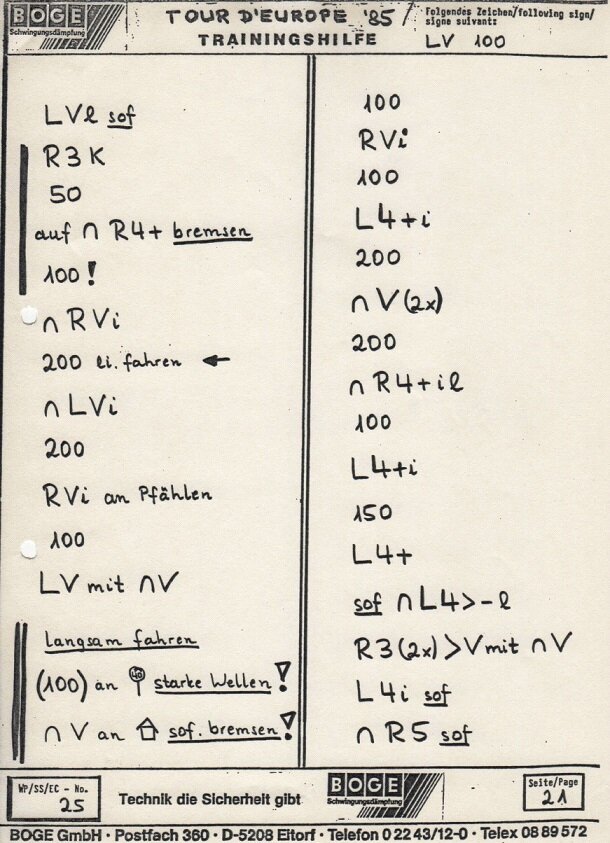 BOGE
Schwingungsdämpfung
TOUR D'EUROPE '85
TRAININGSHILFE
folgendes Zeichen/following sign/
signe suivant:
LV 100
LVl sof
R3K
50
auf ∩ R4+ bremsen
100!
∩ RVi
200 li. fahren ←
∩ LVi
200
RVi an Pfählen
100
LV mit ∩V
langsam fahren
(100) an 40 starke Wellen!
∩ V an sof. bremsen!
100
RVi
100
L4+i
200
∩ V(2x)
200
∩ R4+il
100
L4+i
150
L4+
sof ∩L4>-l
R3(2x)>V mit ∩V
L4i sof
∩ R5 sof
WP/SS/EC - No.
25
Technik die Sicherheit gibt
BOGE
Schwingungsdämpfung
Seite/Page
21
BOGE GmbH · Postfach 360 · D-5208 Eitorf · Telefon 0 22 43/12-0 · Telex 08 89 572